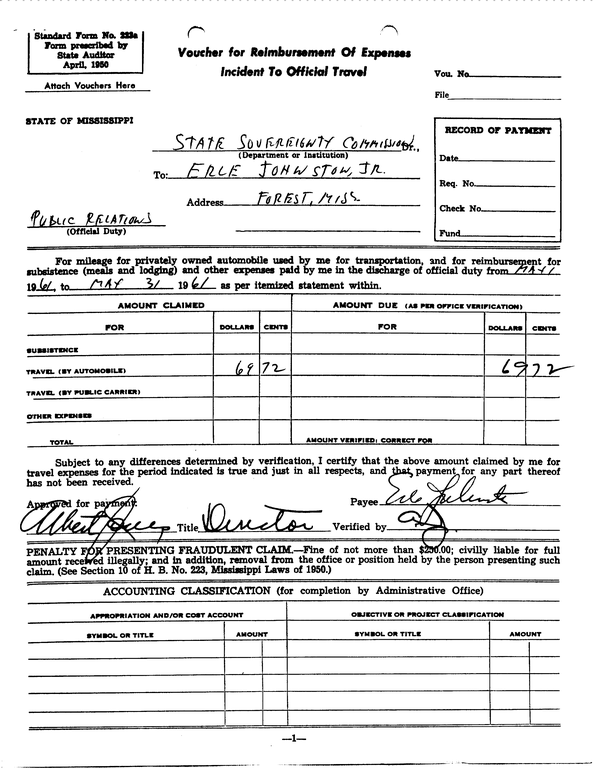 Standard Form No. 223a
Form prescribed by
State Auditor
April, 1950
Attach Vouchers Here
Voucher for Reimbursement Of Expenses
Incident To Official Travel
Vou. No.
File
STATE OF MISSISSIPPI
STATE SOVEREIGNTY COMMISSION
(Department or Institution)
To: ERLE JOHNSTON, JR.
Address FOREST, MISS.
PUBLIC RELATIONS
(Official Duty)
RECORD OF PAYMENT
Date
Req. No.
Check No.
Fund
For mileage for privately owned automobile used by me for transportation, and for reimbursement for
subsistence (meals and lodging) and other expenses paid by me in the discharge of official duty from MAY 1
1961, to MAY 31 1961 as per itemized statement within.
AMOUNT CLAIMED AMOUNT DUE (AS PER OFFICE VERIFICATION)
FOR DOLLARS CENTS FOR DOLLARS CENTS
SUBSISTENCE
TRAVEL (BY AUTOMOBILE) 69 72 69 72
TRAVEL (BY PUBLIC CARRIER)
OTHER EXPENSES
TOTAL AMOUNT VERIFIED: CORRECT FOR
Subject to any differences determined by verification, I certify that the above amount claimed by me for
travel expenses for the period indicated is true and just in all respects, and that payment for any part thereof
has not been received.
Approved for payment: Payee Erle Johnston
Albert Jones Title Director Verified by
PENALTY FOR PRESENTING FRAUDULENT CLAIM.—Fine of not more than $250.00; civilly liable for full
amount received illegally; and in addition, removal from the office or position held by the person presenting such
claim. (See Section 10 of H. B. No. 223, Mississippi Laws of 1950.)
ACCOUNTING CLASSIFICATION (for completion by Administrative Office)
APPROPRIATION AND/OR COST ACCOUNT OBJECTIVE OR PROJECT CLASSIFICATION
SYMBOL OR TITLE AMOUNT SYMBOL OR TITLE AMOUNT
—1—